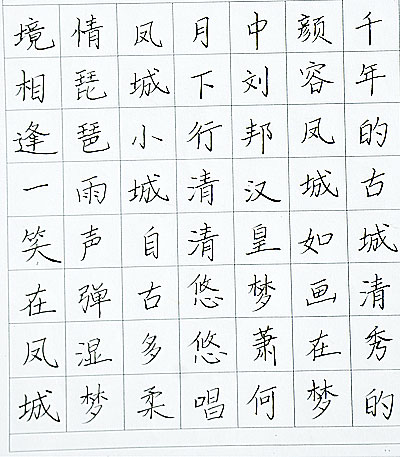 千年的古城清秀的
颜容凤城如画在梦
中刘邦汉皇梦萧何
月下行清清悠悠唱
凤城小城自古多柔
情琵琶雨声弹湿梦
境相逢一笑在凤城